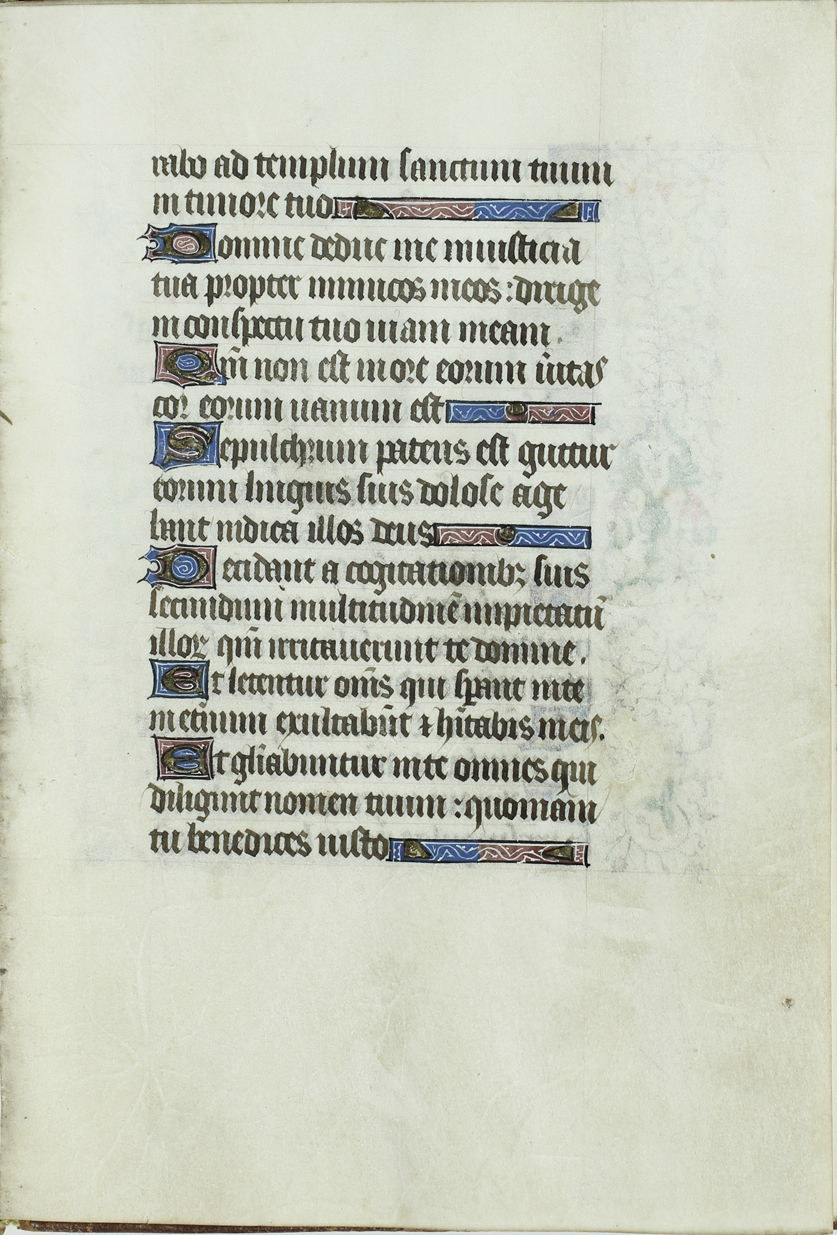 rabo ad templum sanctum tuum
in timore tuo
Domine deduc me iniusticia
tua propter inimicos meos : dirige
in conspectu tuo uiam meam .
Qm̄ non est in ore eorum ūitas
cor eorum uanum est
Sepulchrum patens est guttur
eorum linguis suis dolose age
bant iudica illos deus
Decidant a cogitationibꝫ suis
secundum multitudinē impietatū
illoꝝ qm̄ irritauerunt te domine .
Et letentur om̄s qui sꝑant inte
in et̄num exultabūt ⁊ hi̅tabis ineis .
Et gl̄iabuntur inte omnes qui
diligunt nomen tuum : quoniam
tu benedices iusto